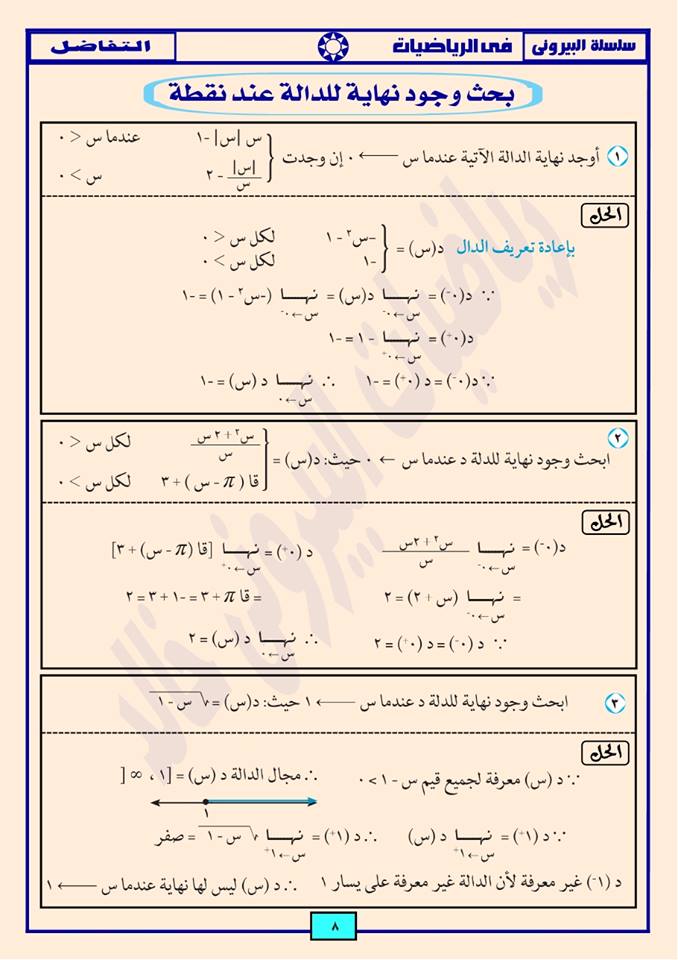 سلسلة البيرونى فى الرياضيات التفاضل
بحث وجود نهاية للدالة عند نقطة
١ أوجد نهاية الدالة الآتية عندما س ← ٠ إن وجدت { س |س| -١ عندما س < ٠
|س|/س - ٢ س > ٠
الحل
بإعادة تعريف الدال د(س) = { -س² - ١ لكل س < ٠
-١ لكل س > ٠
∵ د(٠⁻) = نهــا س←٠⁻ د(س) = نهــا س←٠⁻ (-س² - ١) = -١
د(٠⁺) = نهــا س←٠⁺ - ١ = -١
∵ د(٠⁻) = د (٠⁺) = -١ ∴ نهــا س←٠ د (س) = -١
٢ ابحث وجود نهاية للدلة د عندما س ← ٠ حيث: د(س) = { س² + ٢ س / س لكل س < ٠
قا ( π - س ) + ٣ لكل س > ٠
الحل
د(٠⁻) = نهــا س←٠⁻ س² + ٢س / س د (٠⁺) = نهــا س←٠⁺ [قا (π - س) + ٣]
= نهــا س←٠⁻ (س + ٢) = ٢ = قا π + ٣ = -١ + ٣ = ٢
∵ د (٠⁻) = د (٠⁺) = ٢ ∴ نهــا س←٠ د (س) = ٢
٣ ابحث وجود نهاية للدلة د عندما س ← ١ حيث: د(س) = √س - ١
الحل
∵ د (س) معرفة لجميع قيم س - ١ > ٠ ∴ مجال الدالة د (س) = [١ ، ∞ [
١
∵ د (١⁺) = نهــا س←١⁺ د (س) ∴ د (١⁺) = نهــا س←١⁺ √س - ١ = صفر
د (١⁻) غير معرفة لأن الدالة غير معرفة على يسار ١ ∴ د (س) ليس لها نهاية عندما س ← ١
٨
رياضيات البيرونى خالد